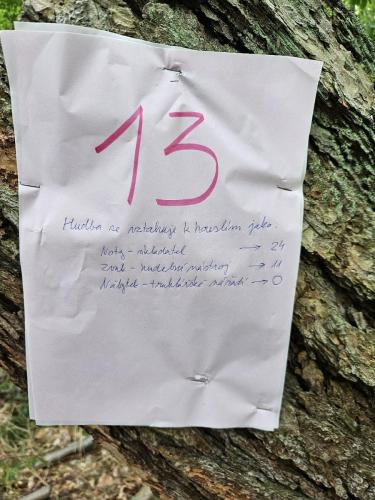 13
Hudba se vztahuje k houslím jako:
Noty - skladatel → 24
Zvuk - hudební nástroj → 11
Nábytek - truhlářské nářadí → 0